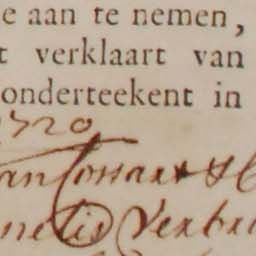 e aan te nemen,
t verklaart van
onderteekent in
1720
van Cossart & C
nelis Verbr